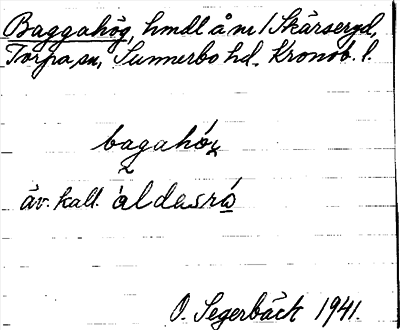 Baggahög, hmdl å nr 1 Skärseryd,
Torpa sn, Sunnerbo hd. Kronob. l.
bagahóz
äv. kall. àldasrå
O. Segerbäck 1941.